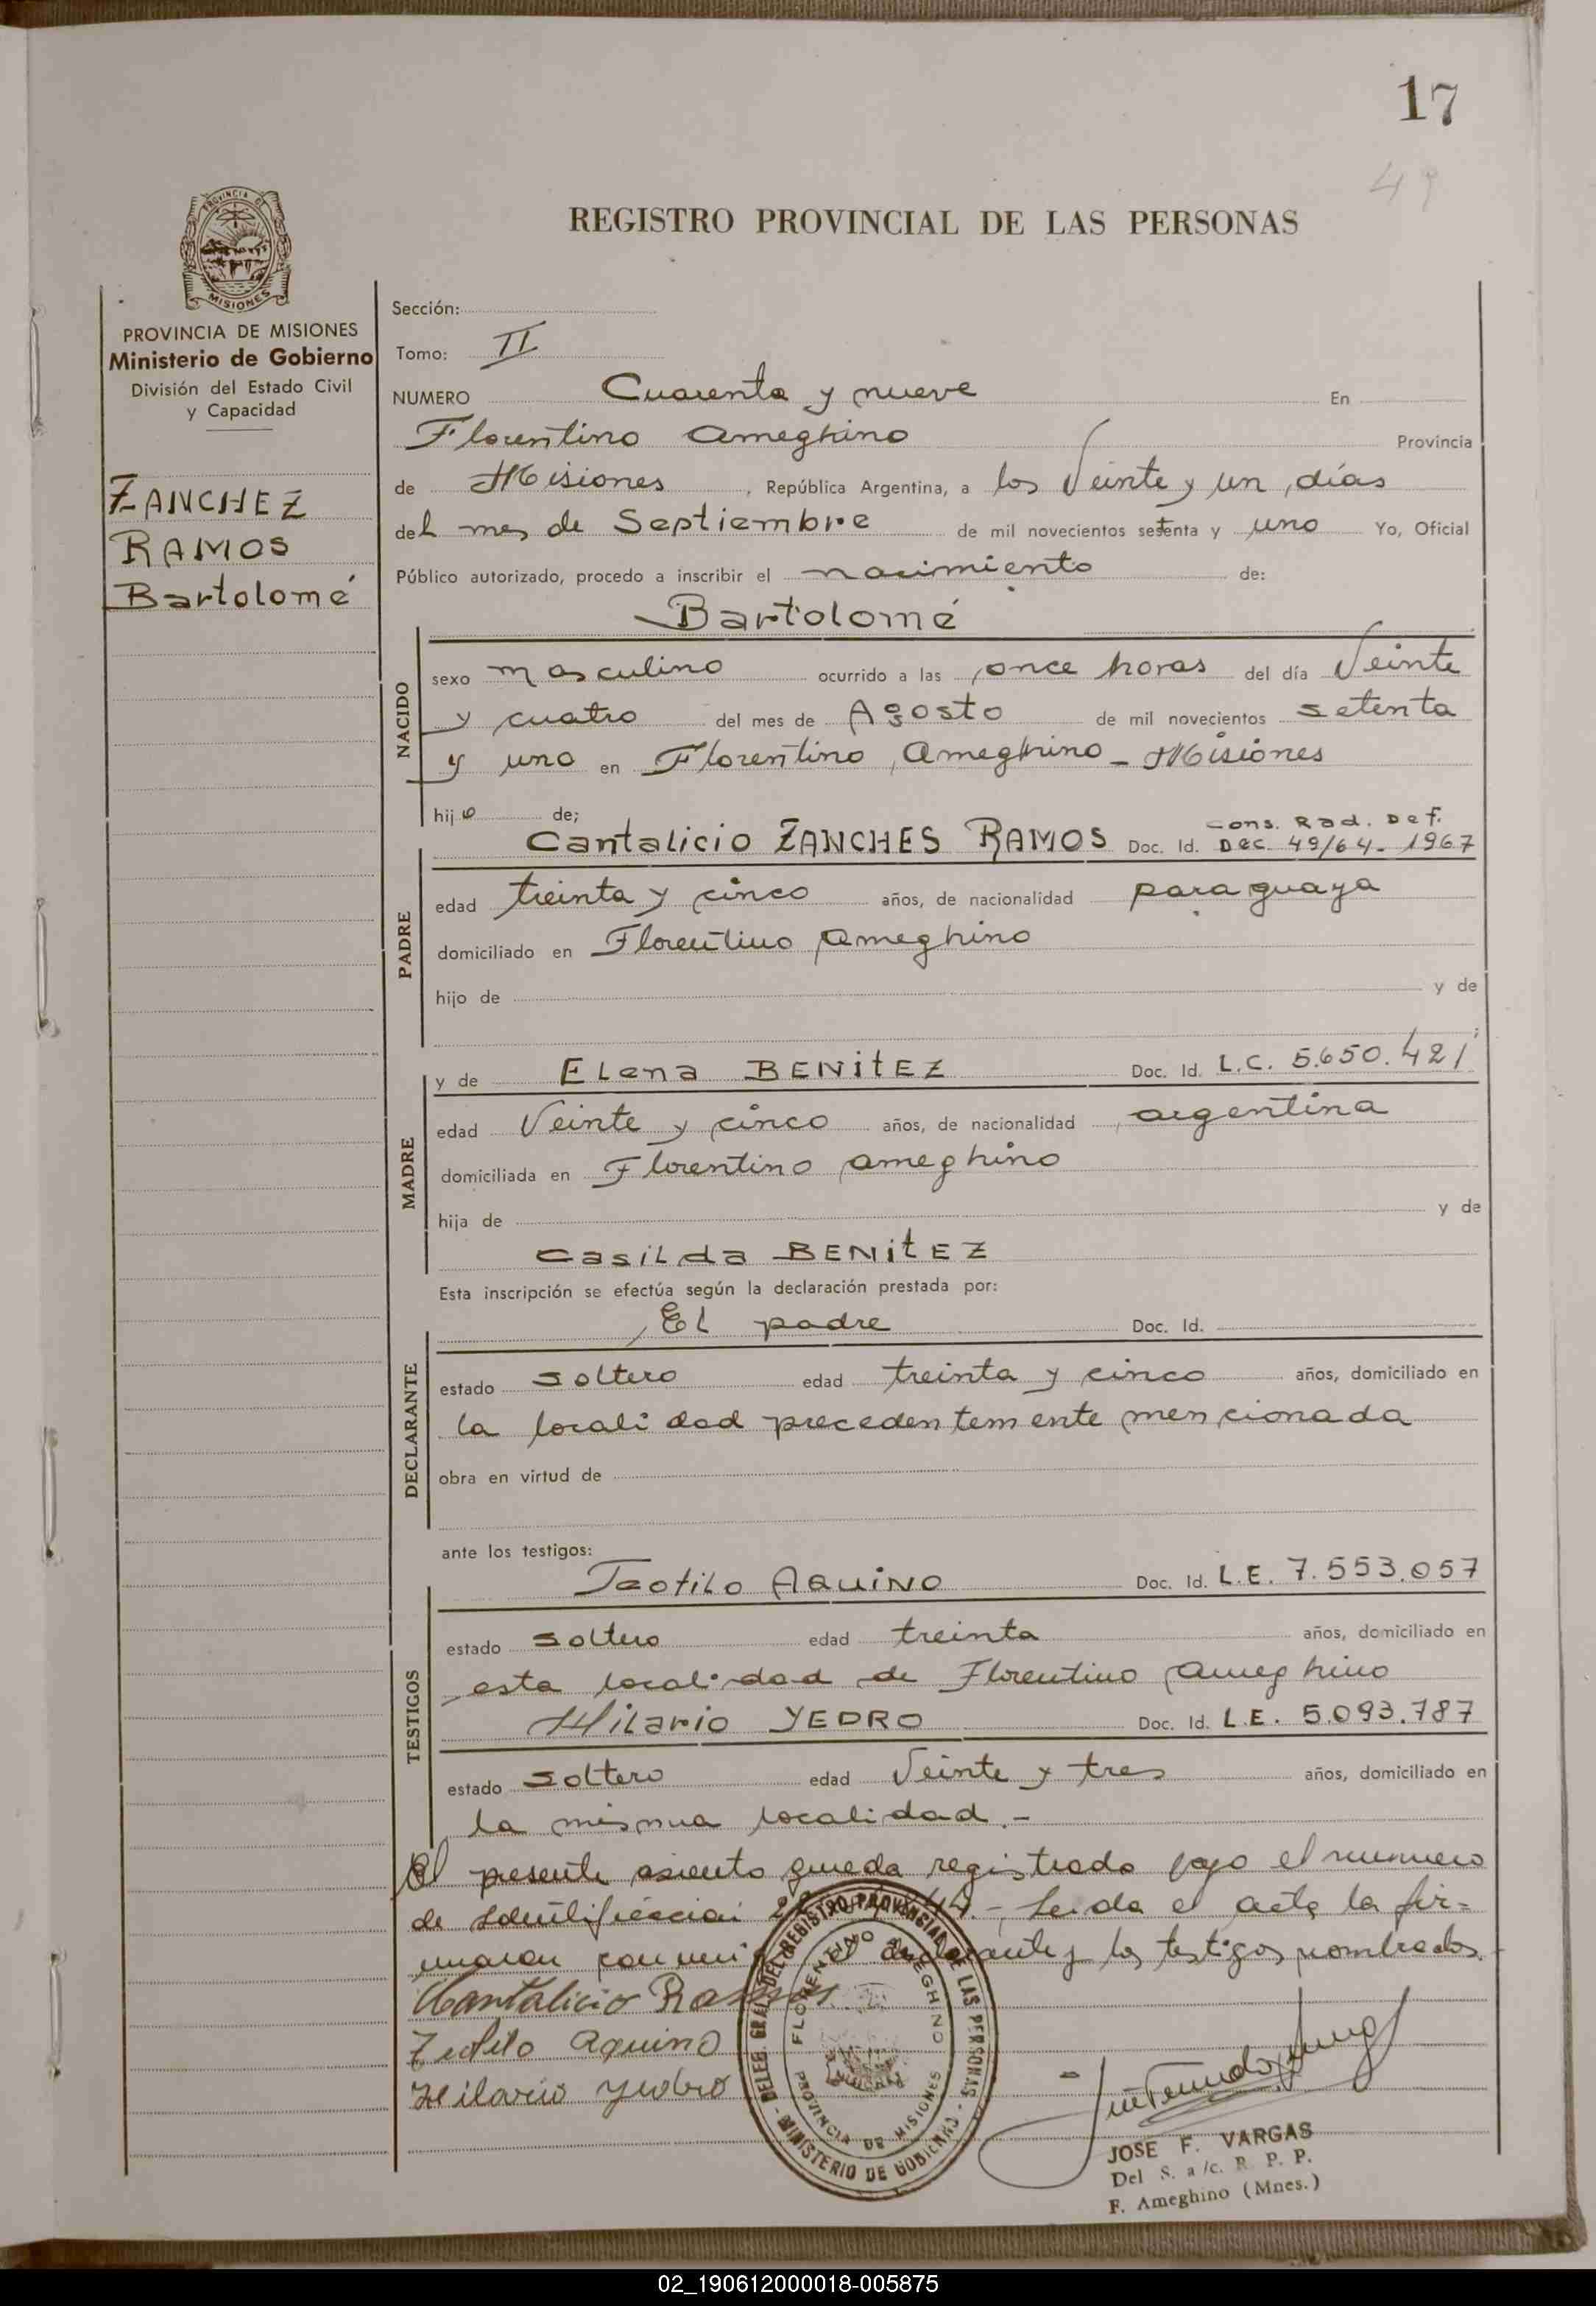 17
49
REGISTRO PROVINCIAL DE LAS PERSONAS
PROVINCIA DE
MISIONES
PROVINCIA DE MISIONES
Ministerio de Gobierno
División del Estado Civil
y Capacidad
ZANCHEZ
RAMOS
Bartolomé
Sección:
Tomo: II
NUMERO Cuarenta y nueve En
Florentino Ameghino Provincia
de Misiones, República Argentina, a los Veinte y un días
del mes de Septiembre de mil novecientos setenta y uno Yo, Oficial
Público autorizado, procedo a inscribir el nacimiento de:
Bartolomé
NACIDO
sexo masculino ocurrido a las once horas del día Veinte
y cuatro del mes de Agosto de mil novecientos setenta
y uno en Florentino Ameghino - Misiones
hijo de;
Cantalicio ZANCHES RAMOS Doc. Id. Cons. Rad. Def. Dec. 49/64- 1967
PADRE
edad treinta y cinco años, de nacionalidad paraguaya
domiciliado en Florentino Ameghino
hijo de y de
;
y de Elena BENITEZ Doc. Id. L.C. 5.650.421
MADRE
edad Veinte y cinco años, de nacionalidad argentina
domiciliada en Florentino Ameghino
hija de y de
Casilda BENITEZ
Esta inscripción se efectúa según la declaración prestada por:
El padre Doc. Id.
DECLARANTE
estado soltero edad treinta y cinco años, domiciliado en
la localidad precedentemente mencionada
obra en virtud de
ante los testigos:
Teofilo AQUINO Doc. Id. L.E. 7.553.057
TESTIGOS
estado soltero edad treinta años, domiciliado en
esta localidad de Florentino Ameghino
Hilario YEDRO Doc. Id. L.E. 5.093.787
estado soltero edad Veinte y tres años, domiciliado en
la misma localidad.-
El presente asiento queda registrado bajo el numero
de identificación - Leida el acta la fir=
maron conmigo el declarante y los testigos nombrados.
Cantalicio Ramos
Teofilo Aquino
Hilario Yedro
DELEG. GRAL. DEL REGISTRO PROVINCIAL DE LAS PERSONAS - MINISTERIO DE GOBIERNO -
FLORENTINO AMEGHINO
PROVINCIA DE MISIONES
JOSE F. VARGAS
Del S. a/c. R. P. P.
F. Ameghino (Mnes.)
02_190612000018-005875